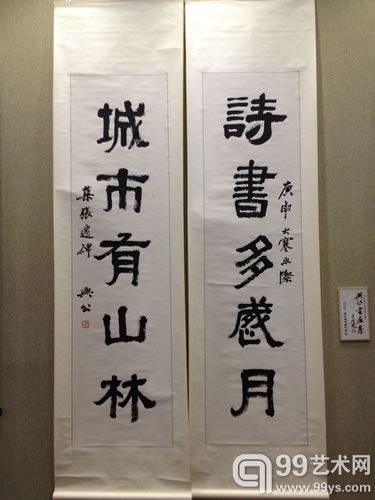 詩書多感月
庚申大寒之際
城市有山林
集張遷碑
興公
99艺术网
www.99ys.com